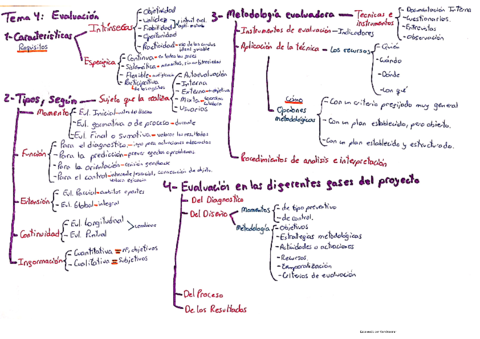 Tema 4: Evaluación
1- Características
Requisitos
Intrínsecas
- Objetividad
- Validez
- Fiabilidad
- Oportunidad
- Practicidad
Específica
- Continua
- Sistemática
- Flexible
- Participativa
2- Tipos, según
Sujeto que la realiza
- Autoevaluación
- Interna
- Externa
- Mixta
- Usuarios
Momento
- Ev. Inicial
- Ev. formativa o de proceso - durante
- Ev. Final o sumativa
Función
- Para el diagnostico
- Para la predicción
- Para la orientación
- Para el control
Extensión
- Ev. Parcial
- Ev. Global - integral
Continuidad
- Ev. Longitudinal
- Ev. Puntual
Información
- Cuantitativa = nº, objetivos
- Cualitativa = Subjetivos
3- Metodología evaluadora
Tecnicas e instrumentos
- Documentación Interna
- Cuestionarios.
- Entrevistas
- Observación
- Instrumentos de evaluación - Indicadores
- Aplicación de la técnica - Los recursos
- Quién
- Cuándo
- Dónde
- Con qué
Cómo
Opciones metodológicas
- Con un criterio prefijado muy general
- Con un plan establecido, pero abierto.
- Con un plan establecido y estructurado.
- Procedimientos de analisis e interpretación
4- Evaluación en las diferentes fases del proyecto
- Del Diagnostico
- Del Diseño
Momentos
- de tipo preventivo
- de control.
Metodología
- Objetivos
- Estrategias metodológicas
- Actividades o actuaciones
- Recursos
- Temporalización
- Criterios de evaluación
- Del Proceso
- De los Resultados